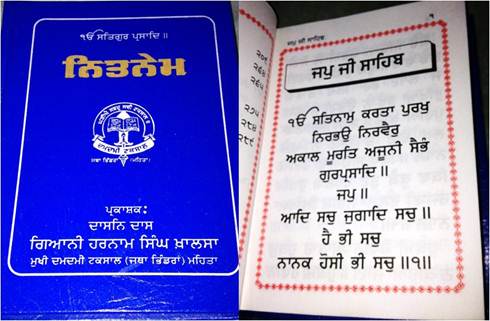 ੴ ਸਤਿਗੁਰ ਪ੍ਰਸਾਦਿ ॥
ਨਿਤਨੇਮ
ਦਮਦਮੀ ਟਕਸਾਲ
ਜਥਾ ਭਿੰਡਰਾਂ (ਮਹਿਤਾ)
ਪ੍ਰਕਾਸ਼ਕ:
ਦਾਸਨਿ ਦਾਸ
ਗਿਆਨੀ ਹਰਨਾਮ ਸਿੰਘ ਖ਼ਾਲਸਾ
ਮੁਖੀ ਦਮਦਮੀ ਟਕਸਾਲ (ਜਥਾ ਭਿੰਡਰਾਂ) ਮਹਿਤਾ
੨੭੫
੨੮੪
੨੮੯
ਜਪੁ ਜੀ ਸਾਹਿਬ
੧
ਜਪੁ ਜੀ ਸਾਹਿਬ
ੴ ਸਤਿਨਾਮੁ ਕਰਤਾ ਪੁਰਖੁ
ਨਿਰਭਉ ਨਿਰਵੈਰੁ
ਅਕਾਲ ਮੂਰਤਿ ਅਜੂਨੀ ਸੈਭੰ
ਗੁਰਪ੍ਰਸਾਦਿ॥
ਜਪੁ॥
ਆਦਿ ਸਚੁ ਜੁਗਾਦਿ ਸਚੁ॥
ਹੈ ਭੀ ਸਚੁ
ਨਾਨਕ ਹੋਸੀ ਭੀ ਸਚੁ॥੧॥